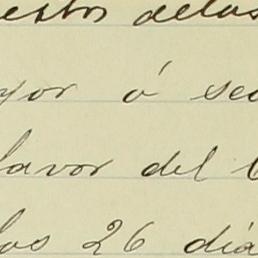 estos delos
yor ó sea
favor del
los 26 día